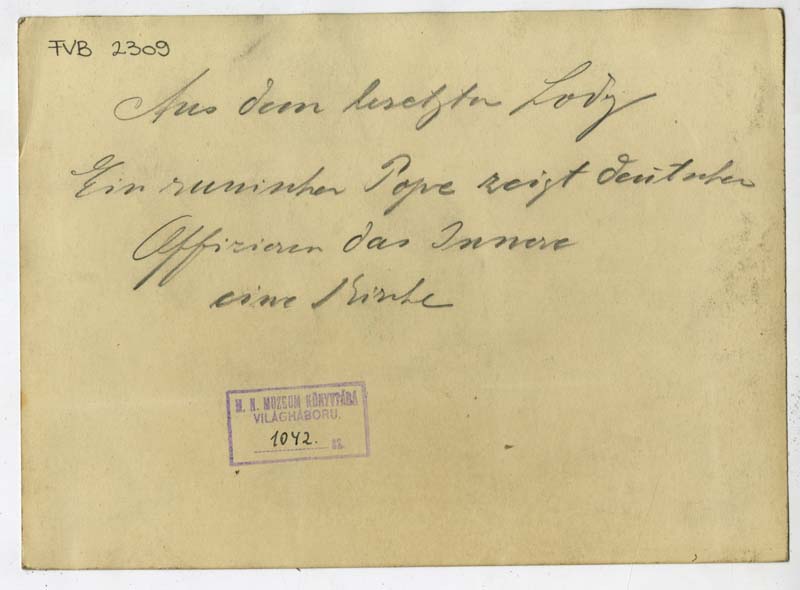 FVB 2309
Aus dem besetzten Lodz
Ein russischer Pope zeigt deutschen
Offizieren das Innere
eine Kirche
M. N. MUZEUM KÖNYVTÁRA
VILÁGHÁBORU.
1042. sz.